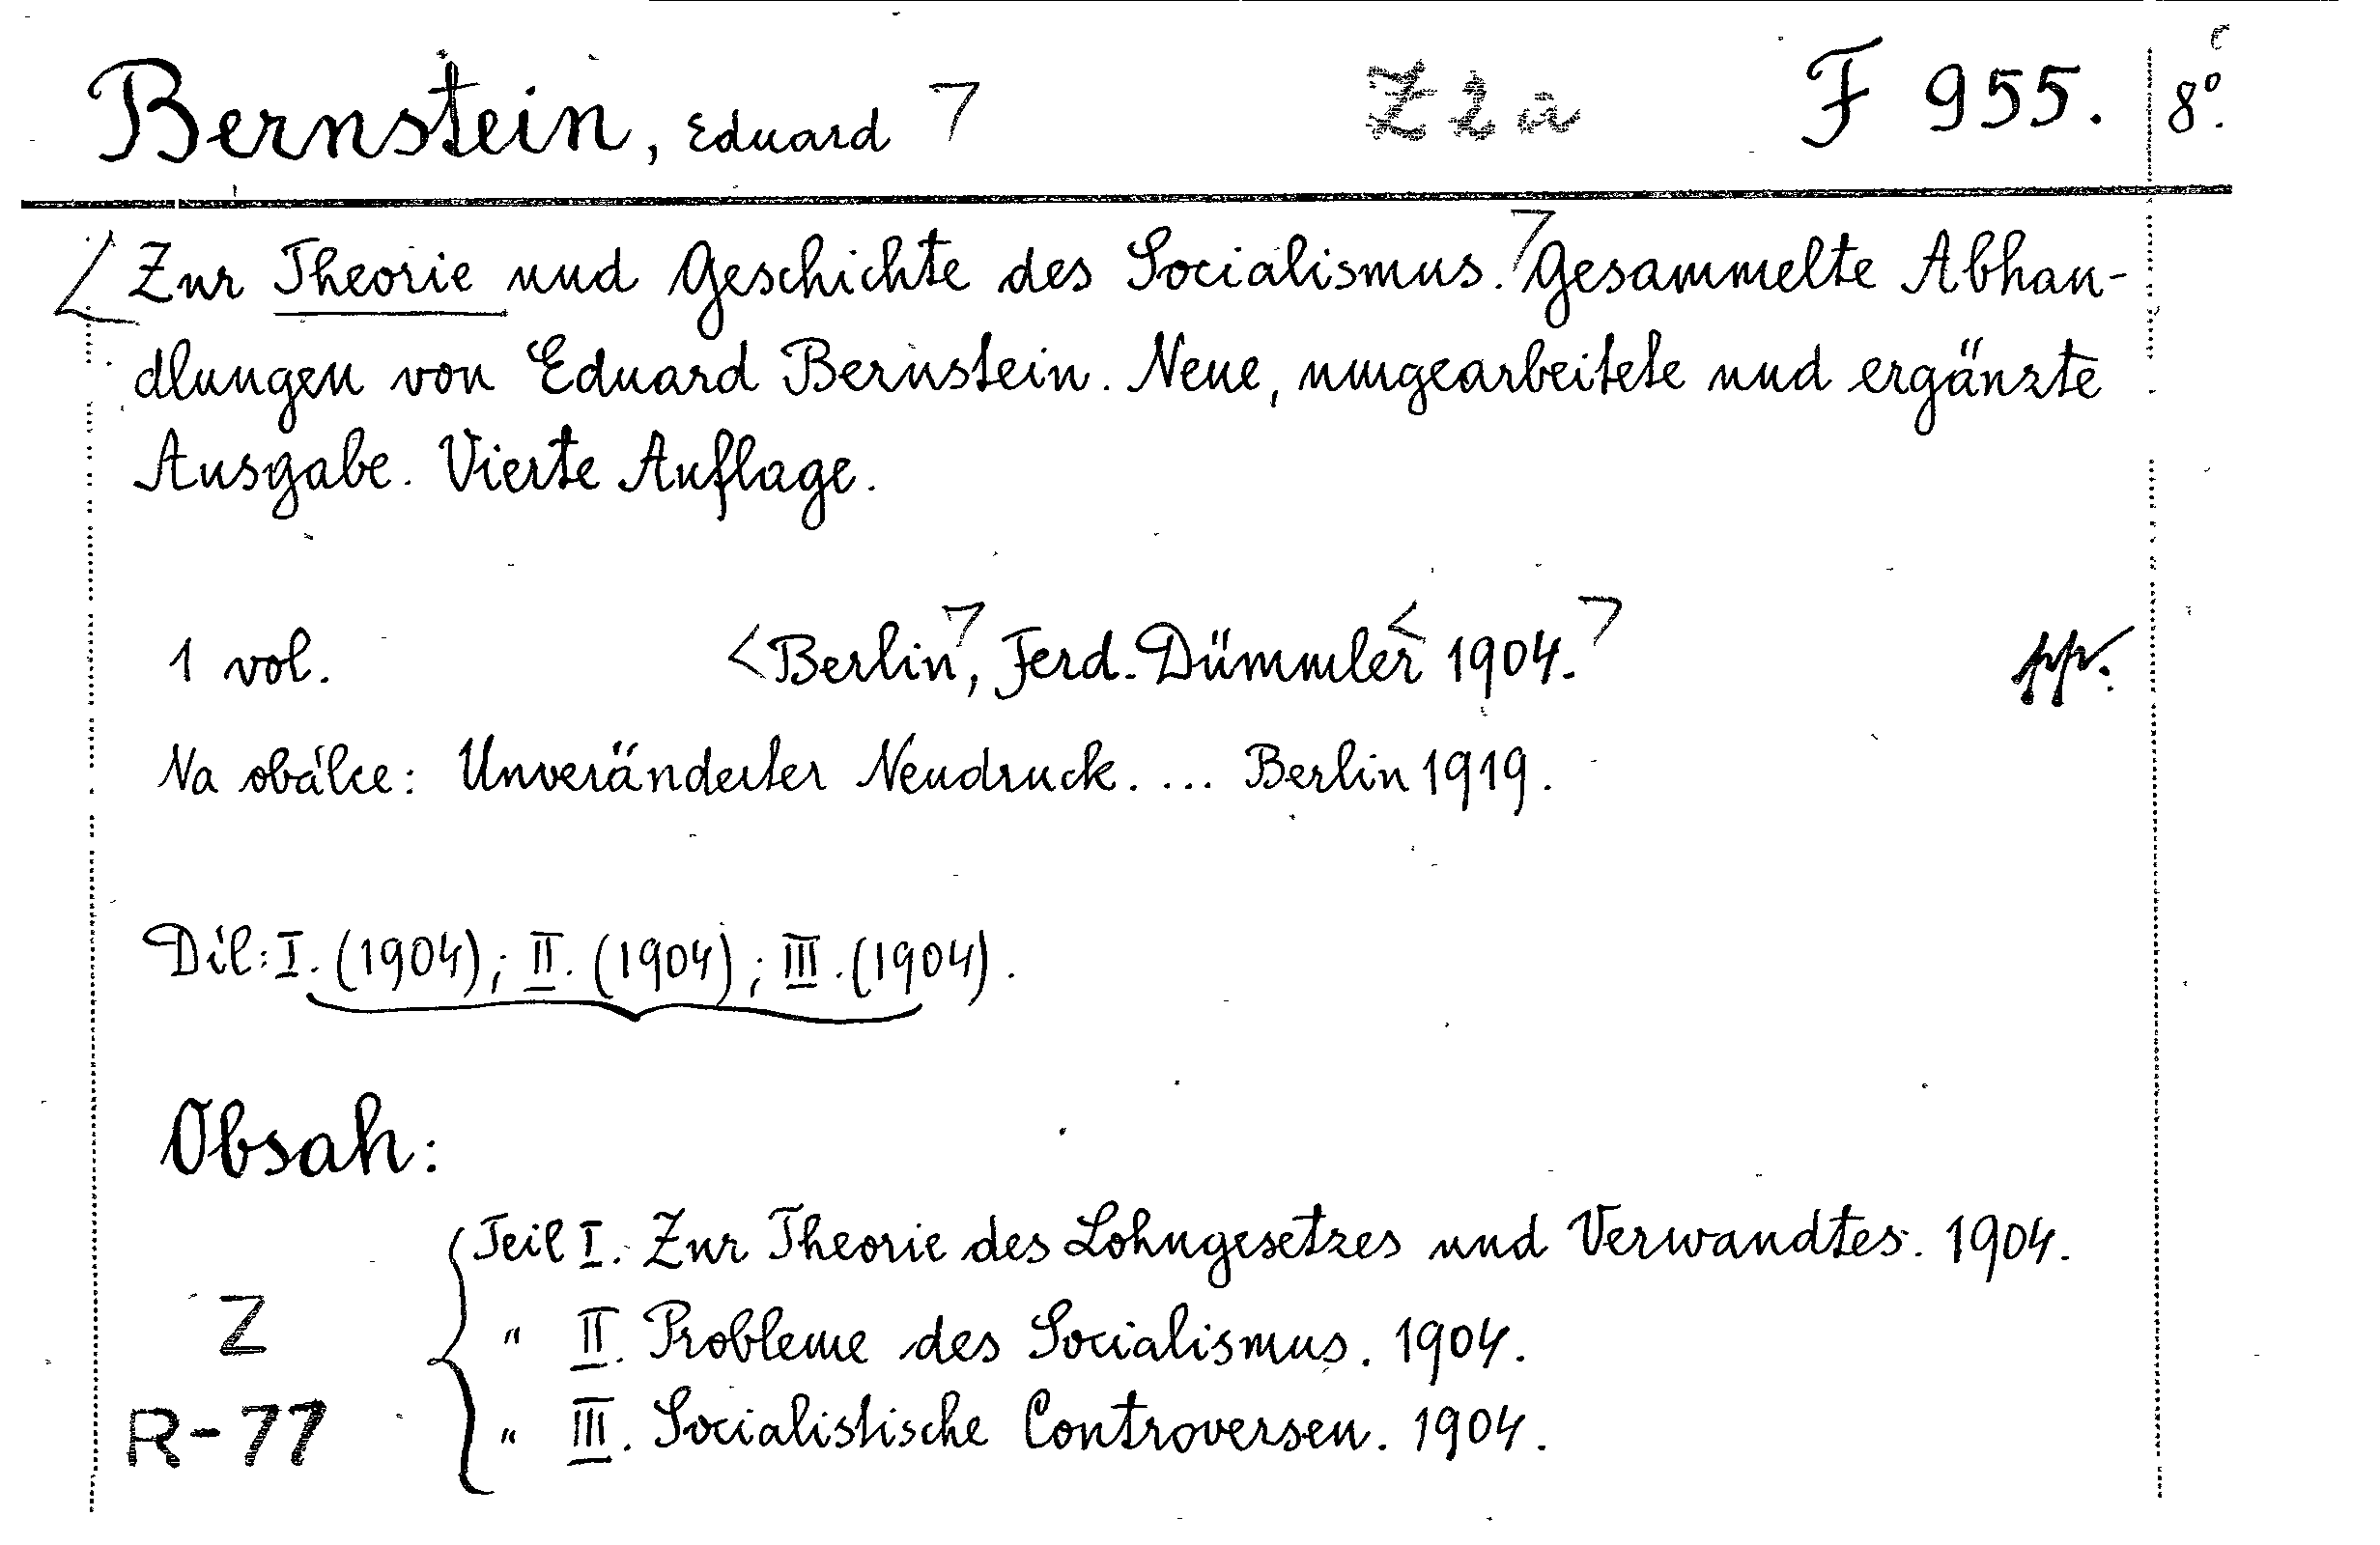 Bernstein, Eduard Z 2 a F 955. 8°.
Zur Theorie und Geschichte des Socialismus. Gesammelte Abhan-
dlungen von Eduard Bernstein. Neue, umgearbeitete und ergänzte
Ausgabe. Vierte Auflage.
1 vol. <Berlin, Ferd. Dümmler 1904.
Na obálce: Unveränderter Neudruck. ... Berlin 1919.
Díl: I. (1904); II. (1904); III. (1904).
Obsah:
Teil I. Zur Theorie des Lohngesetzes und Verwandtes. 1904.
Z " II. Probleme des Socialismus. 1904.
R-77 " III. Socialistische Controversen. 1904.